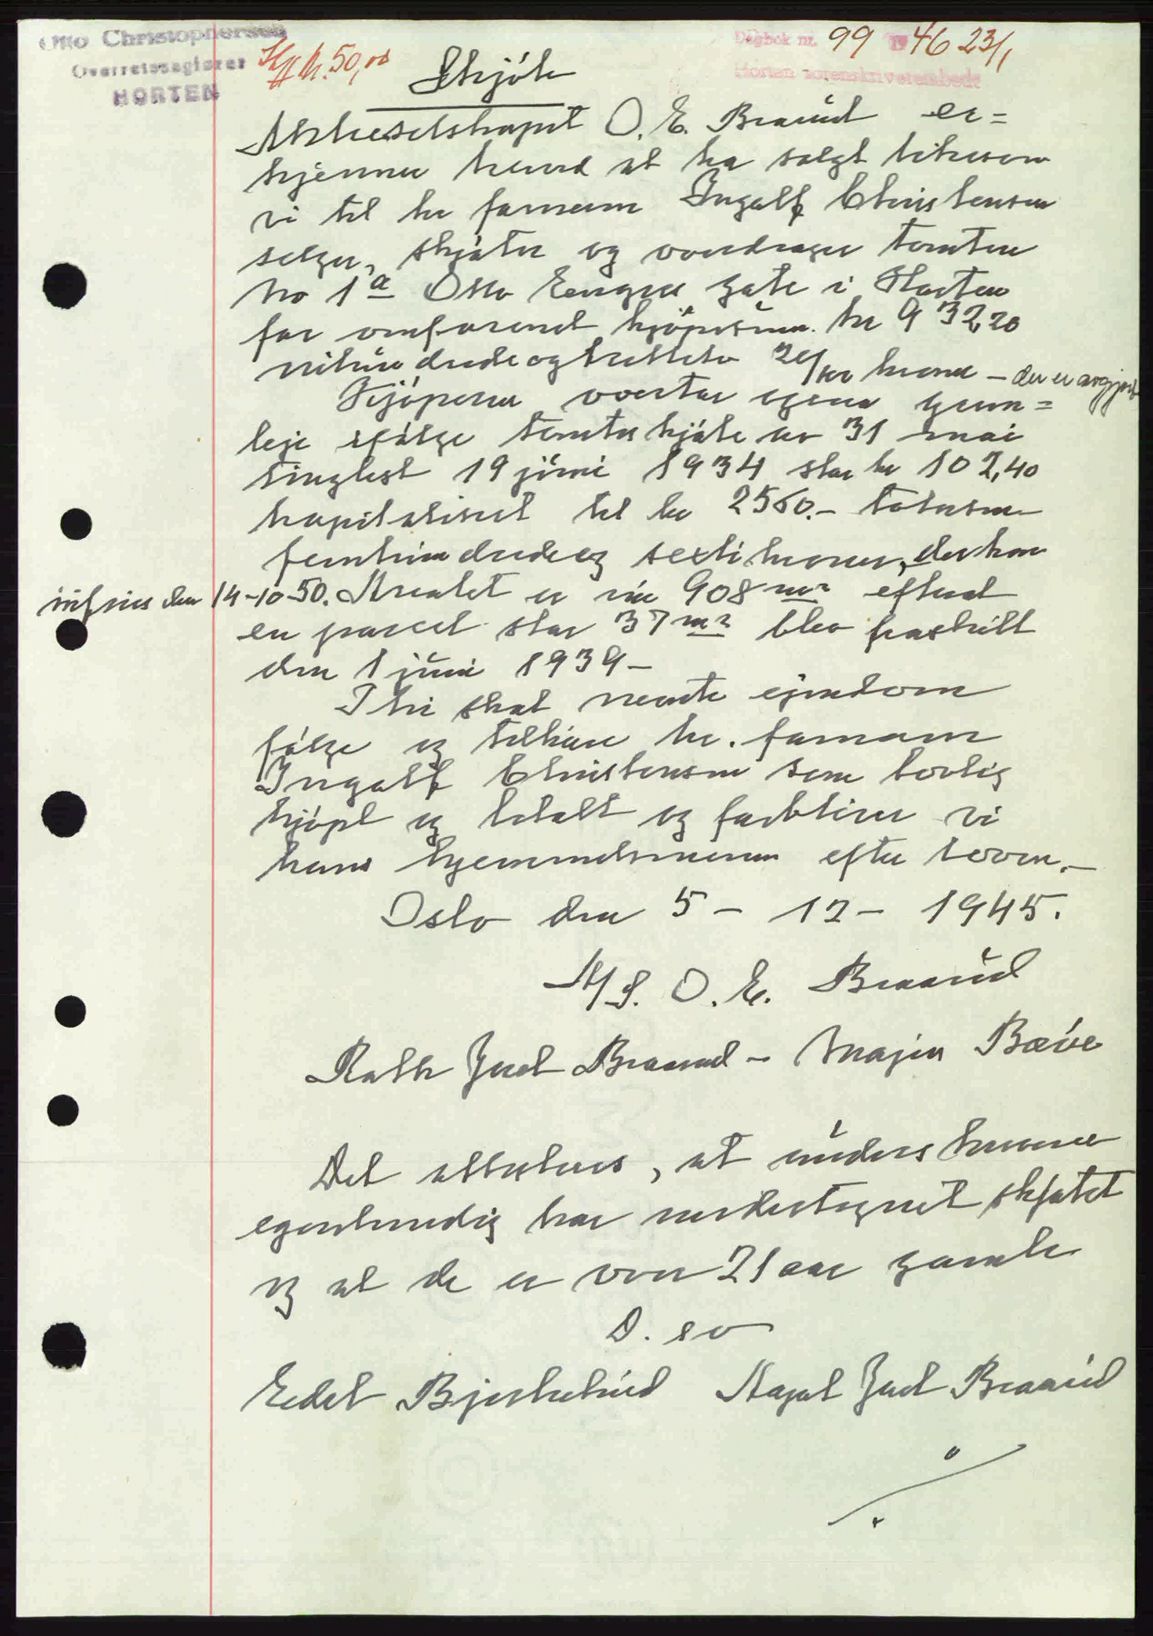 Otto Christophersen
Overretssagfører
HORTEN
kr. 50,00
Dagbok nr. 99 1946 23/1
Horten sorenskriverembede
Skjöte
Aktieselskapet O. E. Braarud er=
kjenner herved at ha solgt likesom
vi til hr formann Ingolf Christensen
selger, skjöter og overdrager tomten
No 1a Otto gate i Horten
for omforenet kjöpesum kr 932,20
nihundredeogtrettito 20/100 kroner - der er avgjort
Kjöperen overtar egen grun=
leje ifölge tomteskjöte av 31 mai
tinglest 19 juni 1934 stor kr 102,40
kapitaliseret til kr 2560.- totusen
femhundredeog sexti kroner, der kan
innfries den 14-10-50. Arealet er nu 908 m2 efterat
en parcel stor 37 m2 blev fraskilt
den 1 juni 1939 -
Thi skal nevnte ejendom
fölge og tilhöre hr. formann
Ingolf Christensen som lovlig
kjöpt og betalt og forbliver vi
hans hjemmelsmenn efter loven.-
Oslo den 5 - 12 - 1945.
A/S. O. E. Braarud
Juel Braarud -
Det attesteres, at underskriverne
egenhendig har undertegnet skjötet
og at de er over 21 aar gamle
D. so
Juel Braarud